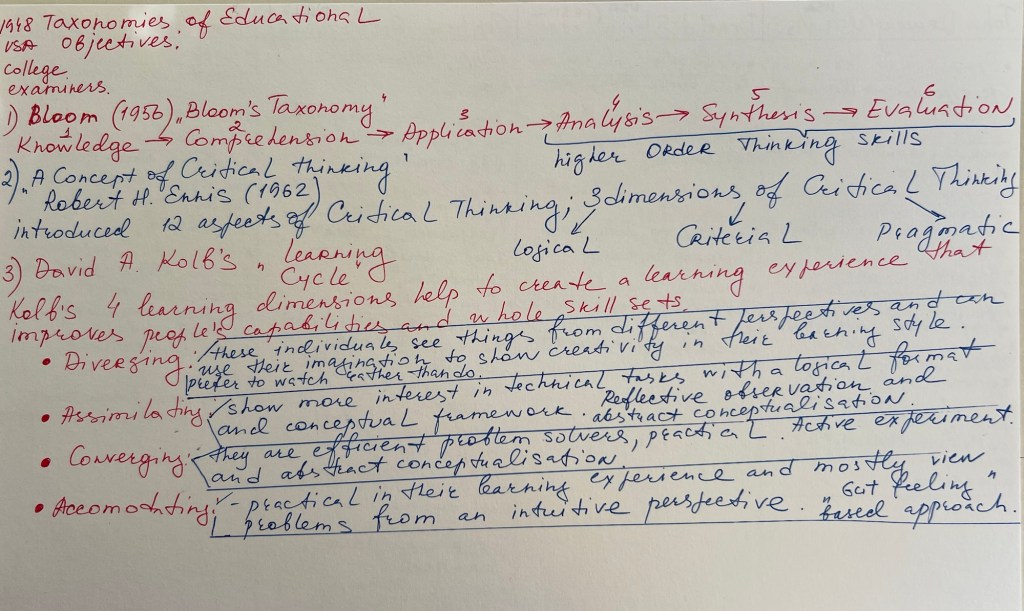 1948 Taxonomies of Educational
USA Objectives.
college
examiners.
1) Bloom (1956) „Bloom's Taxonomy"
1 2 3 4 5 6
Knowledge → Comprehension → Application → Analysis → Synthesis → Evaluation
higher ORDER Thinking skills
2) „A Concept of Critical thinking"
Robert H. Ennis (1962)
introduced 12 aspects of Critical Thinking; 3 dimensions of Critical Thinking
Logical Criterial Pragmatic
3) David A. Kolb's „Learning
Cycle"
Kolb's 4 learning dimensions help to create a learning experience that
improves people's capabilities and whole skill sets.
• Diverging: these individuals see things from different perspectives and can
use their imagination to show creativity in their learning style.
prefer to watch rather than do.
• Assimilating: show more interest in technical tasks with a logical format
and conceptual framework. Reflective observation and
abstract conceptualisation.
• Converging: they are efficient problem solvers, practical. Active experiment.
and abstract conceptualisation.
• Accomodating: - practical in their learning experience and mostly view
problems from an intuitive perspective. „Gut feeling"
based approach.